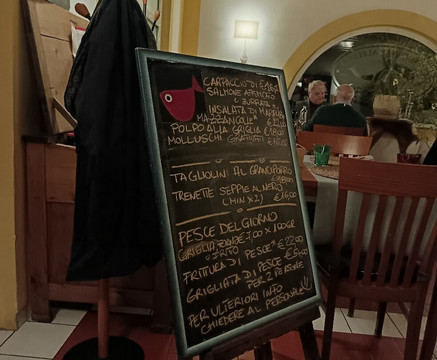 CARPACCIO DI
SALMONE AFFUMICATO
E BURRATA
INSALATA DI MARE
MAZZANCOLLE*
POLPO ALLA GRIGLIA €18,00
MOLLUSCHI GRATINATI
TAGLIOLINI AL GRANCIPORRO
TRENETTE SEPPIE AL NERO
(MIN X2) €16,00
PESCE DEL GIORNO
GRIGLIA/FORNO €7,00 X 100GR
O FRITTO
FRITTURA DI PESCE* €22,00
GRIGLIATA DI PESCE
PER 2 PERSONE
PER ULTERIORI INFO
CHIEDERE AL PERSONALE